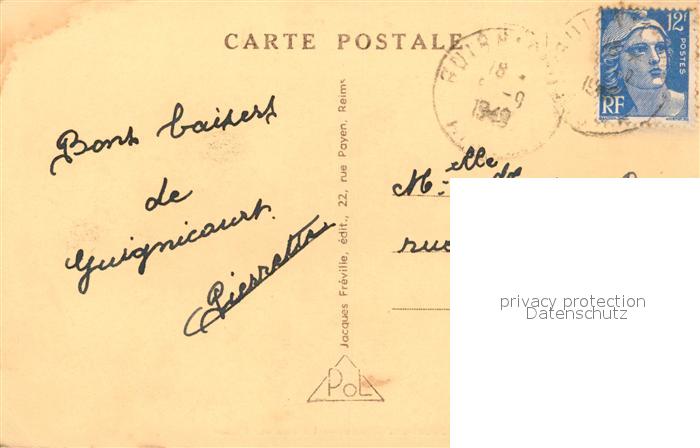 CARTE POSTALE
12F
POSTES
RF
18
-9
1949
Bons baisers
de
Guignicourt.
Pierrette
Jacques Fréville, édit., 22, rue Payen, Reims
PoL
Melle
rue
privacy protection
Datenschutz